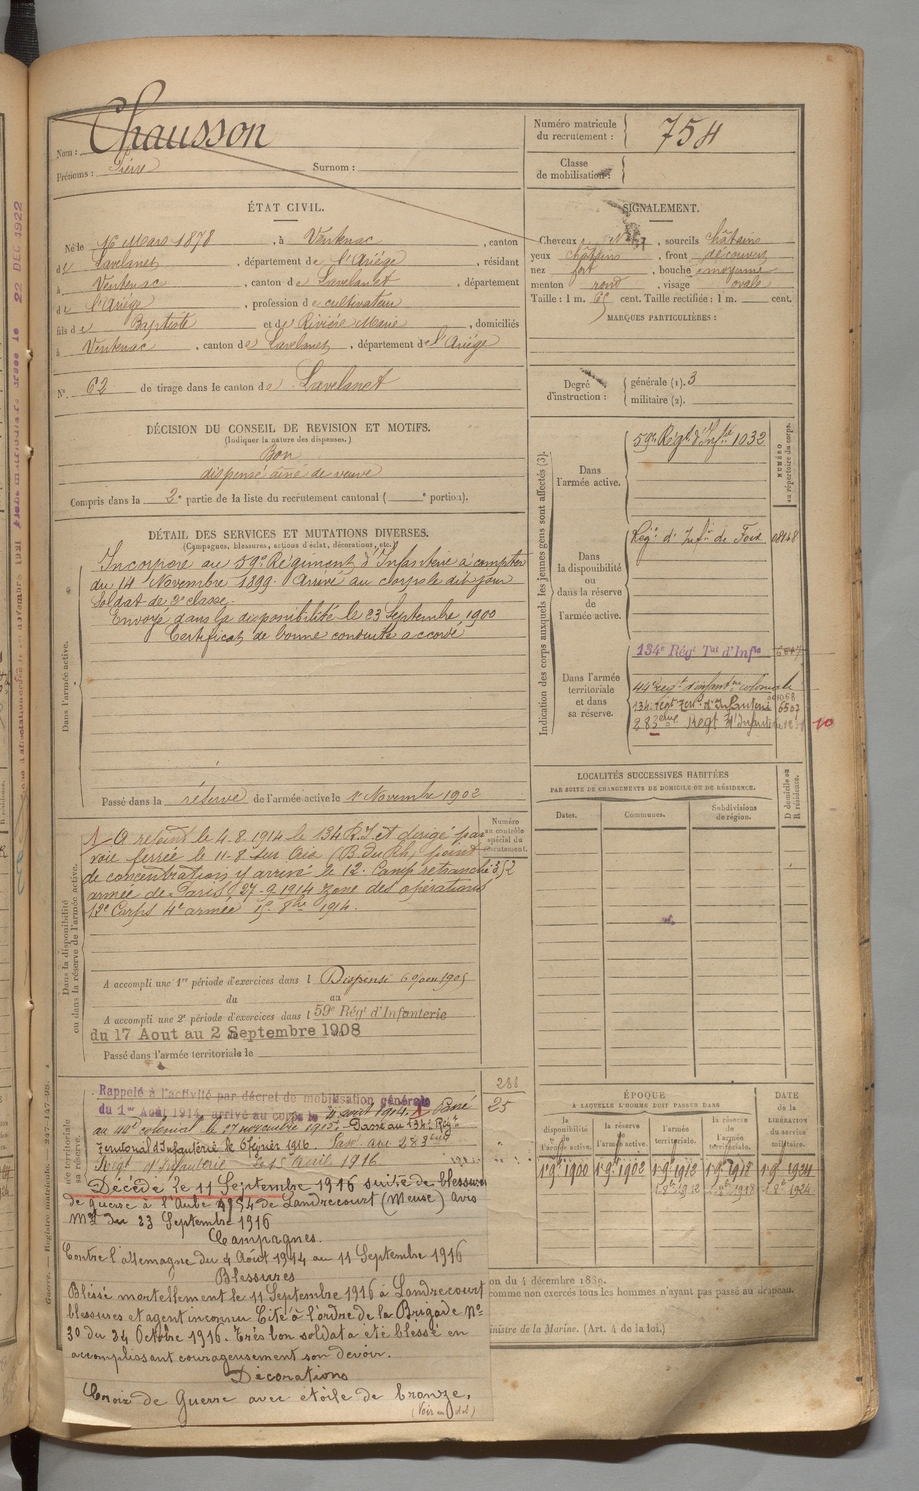 Chausson
Nom :
Prénoms : Pierre Surnom :
Numéro matricule du recrutement : 754
Classe de mobilisation :
ÉTAT CIVIL.
Né le 16 Mars 1878, à Ventenac, canton
de Lavelanet, département de l'Ariège, résidant
à Ventenac, canton de Lavelanet, département
de l'Ariège, profession de cultivateur
fils de Baptiste et de Rivière Marie, domiciliés
à Ventenac, canton de Lavelanet, département de l'Ariège
N° 62 de tirage dans le canton de Lavelanet
SIGNALEMENT.
Cheveux, sourcils châtains
yeux châtains, front découvert
nez fort, bouche moyenne
menton rond, visage ovale
Taille : 1 m. 65 cent. Taille rectifiée : 1 m. cent.
MARQUES PARTICULIÈRES :
Degré d'instruction : générale (1). 3
militaire (2).
DÉCISION DU CONSEIL DE REVISION ET MOTIFS.
(Indiquer la nature des dispenses.)
Bon
dispensé aîné de veuve
Compris dans la 2e partie de la liste du recrutement cantonal ( e portion).
DÉTAIL DES SERVICES ET MUTATIONS DIVERSES.
(Campagnes, blessures, actions d'éclat, décorations, etc.)
Dans l'armée active.
Incorporé au 59e Régiment d'Infanterie à compter
du 14 Novembre 1899. Arrivé au corps le dit jour
Soldat de 2e classe.
Envoyé dans la disponibilité le 23 Septembre 1900
Certificat de bonne conduite accordé
Passé dans la réserve de l'armée active le 1er Novembre 1902
Indication des corps auxquels les jeunes gens sont affectés (3).
NUMÉRO au répertoire du corps.
Dans l'armée active.
59e Régt d'Infrie 1032
Dans la disponibilité ou dans la réserve de l'armée active.
Régt d'Infie de Foix
Dans l'armée territoriale et dans sa réserve.
134e Régt Tal d'Infie
44e régt d'infantrie coloniale
134e régt Terral d'Infanterie 6503
283ème Régt d'Infanterie
LOCALITÉS SUCCESSIVES HABITÉES
PAR SUITE DE CHANGEMENTS DE DOMICILE OU DE RÉSIDENCE.
D domicile ou R résidence.
Dates. Communes. Subdivisions de région.
Numéro au contrôle spécial du recrutement.
Dans la disponibilité ou dans la réserve de l'armée active.
A rejoint le 4.8.1914 le 134 R.I et dirigé par
voie ferrée le 11-8 sur Aix (B.du Rh) point
de concentration y arrivé le 12. Camp retranché
armée de Paris 27-9-1914 zone des opérations
12e Corps 4e armée 1er 8bre 1914.
A accompli une 1re période d'exercices dans l Dispensé
du au
A accompli une 2e période d'exercices dans l 59e Régt d'Infanterie
du 17 Aout au 2 Septembre 1908
Passé dans l'armée territoriale le
Rappelé à l'activité par décret de mobilisation générale
du 1er Août 1914, arrivé au corps le 4 août 1914. Passé
au 44e colonial le 17 novembre 1915. Passé au 134e Régt
Territorial d'Infanterie le 6 février 1916. Passé au 283ème
Régt d'Infanterie le 15 Avril 1916
288
25
Décédé le 11 Septembre 1916 suite de blessures
de guerre à l'Aube 4954 de Landrecourt (Meuse) Avis
Mel du 23 Septembre 1916
Campagnes.
Contre l'allemagne du 4 Août 1914 au 11 Septembre 1916
Blessures
Blessé mortellement le 11 Septembre 1916 à Landrecourt
blessures et agent inconnu Cité à l'ordre de la Brigade N°
30 du 24 Octobre 1916. Très bon soldat a été blessé en
accomplissant courageusement son devoir.
Décorations
Croix de Guerre avec étoile de bronze.
ÉPOQUE
À LAQUELLE L'HOMME DOIT PASSER DANS
la disponibilité de l'armée active. la réserve de l'armée active. l'armée territoriale. la réserve de l'armée territoriale.
DATE de la LIBÉRATION du service militaire.
1er 9bre 1900 1er 9bre 1902 1er 9bre 1912 1er 9bre 1918 1er 9bre 1924
1er 8bre 1912 1er 8bre 1918 1er 8bre 1924
on du 4 décembre 1889.
comme non exercés tous les hommes n'ayant pas passé au drapeau.
Ministre de la Marine. (Art. 4 de la loi.)
22 DEC 1922